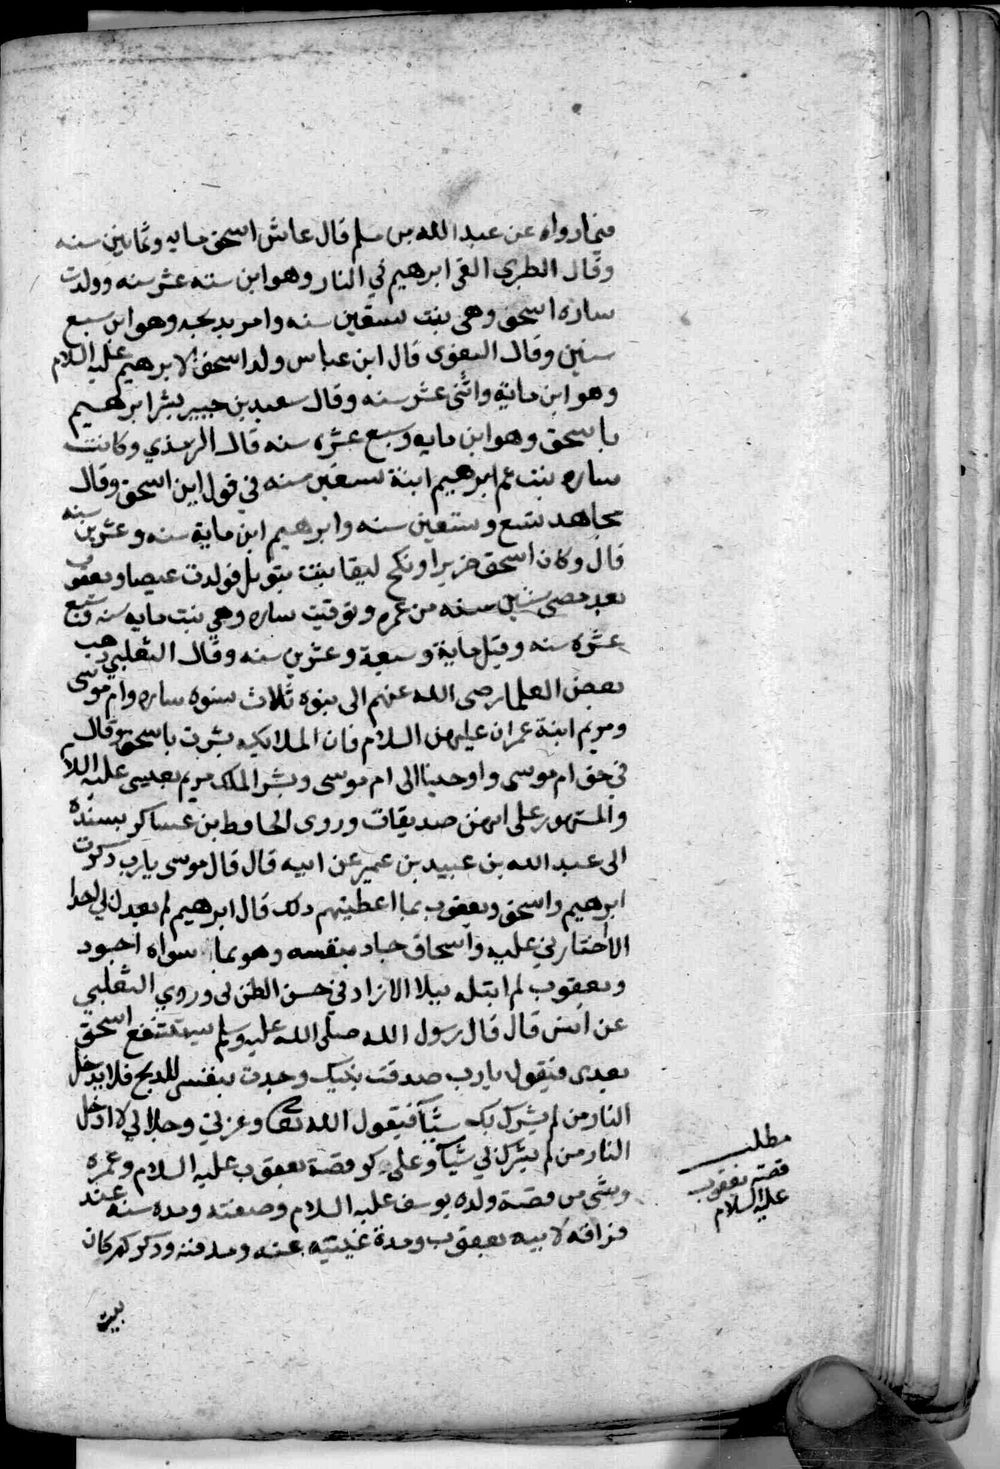 فيما رواه عن عبد الله بن سلم قال عاش اسحق مايه وثمانين سنه
وقال الطبري القى ابرهيم في النار وهو ابن سته عشر سنه وولدت
ساره اسحق وهي بنت تسعين سنه وامر بذبحه وهو ابن سبع
سنين وقال البغوى قال ابن عباس ولد اسحق لابرهيم عليه السلام
وهو ابن ماية واثنى عشر سنه وقال سعيد بن جبير بشر ابرهيم
باسحق وهو ابن مايه وسبع عشره سنه قال الرمذي وكانت
ساره بنت عم ابرهيم ابنة تسعين سنه في قول ابن اسحق وقال
مجاهد تسع وتسعين سنه وابرهيم ابن ماية سنه وعشرين سنه
قال وكان اسحق ضريرا ونكح ليقا بنت بتويل فولدت عيصا ويعقوب
بعد مضى ستين سنه من عمره وتوفيت ساره وهي بنت مايه سنه وتسع
عشره سنه وقيل ماية وسبعة وعشرين سنه وقال الثعلبي ذهب
بعض العلما رضى الله عنهم الى نبوه ثلاث نسوه ساره وام موسى
ومريم ابنة عمران عليهن السلام فان الملايكه بشرت باسحق وقال
في حق ام موسى واوحينا الى ام موسى وبشر الملك مريم بعيسى عليه السلام
والمشهور على انهن صديقات وروى الحافظ بن عساكر بسنده
الى عبد الله بن عبيد بن عمير عن ابيه قال قال موسى يارب ذكرت
ابرهيم واسحق ويعقوب بما اعطيتهم ذلك قال ابرهيم لم يعدل لي احدا
الا اختارني عليه واسحاق جاد بنفسه وهو بما سواه اجود
ويعقوب لم ابتله ببلا الا زاد في حسن الظن بى وروي الثعلبي
عن انس قال قال رسول الله صلى الله عليه وسلم سيشفع اسحق
بعدى فيقول يارب صدقت نبيك وجدت بنفسى للذبح فلا يدخل
النار من لم يشرك بك شيآ فيقول الله تعالى وعزتي وجلالي لا ادخل
النار من لم يشرك بي شيآ وعلى كو قصة يعقوب عليه السلام وعمره
وشى من قصة ولده يوسف عليه السلام وصفته ومده سنه عند
فراقه لابيه يعقوب ومدة غيبته عنه ومدفنه وذكر كم كان
مطلب
قصة يعقوب
عليه السلام
بيت